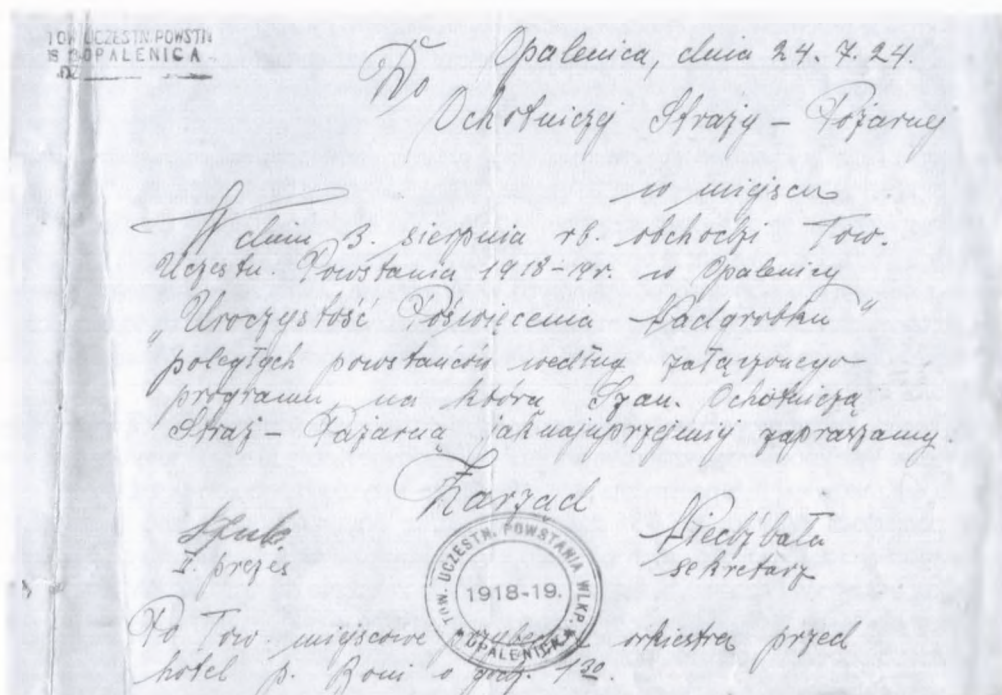 TOW UCZESTN. POWSTN
OPALENICA
Opalenica, dnia 24. 7. 24.
Do
Ochotniczej Straży – Pożarnej
w miejscu
W dniu 3. sierpnia rb. obchodzi Tow.
Uczestn. Powstania 1918-19r. w Opalenicy
„Uroczystość Poświęcenia Nadgrobku"
poległych powstańców według załączonego
programu, na którą Szan. Ochotniczą
Straż – Pożarną jaknajuprzejmiej zapraszamy.
Zarząd
I. prezes
Niedźbała
sekretarz
TOW. UCZESTN. POWSTANIA WLKP.
1918-19.
OPALENICA
Po Tow. miejscowe przybędzie orkiestra przed
hotel p. o godz. 1 30.